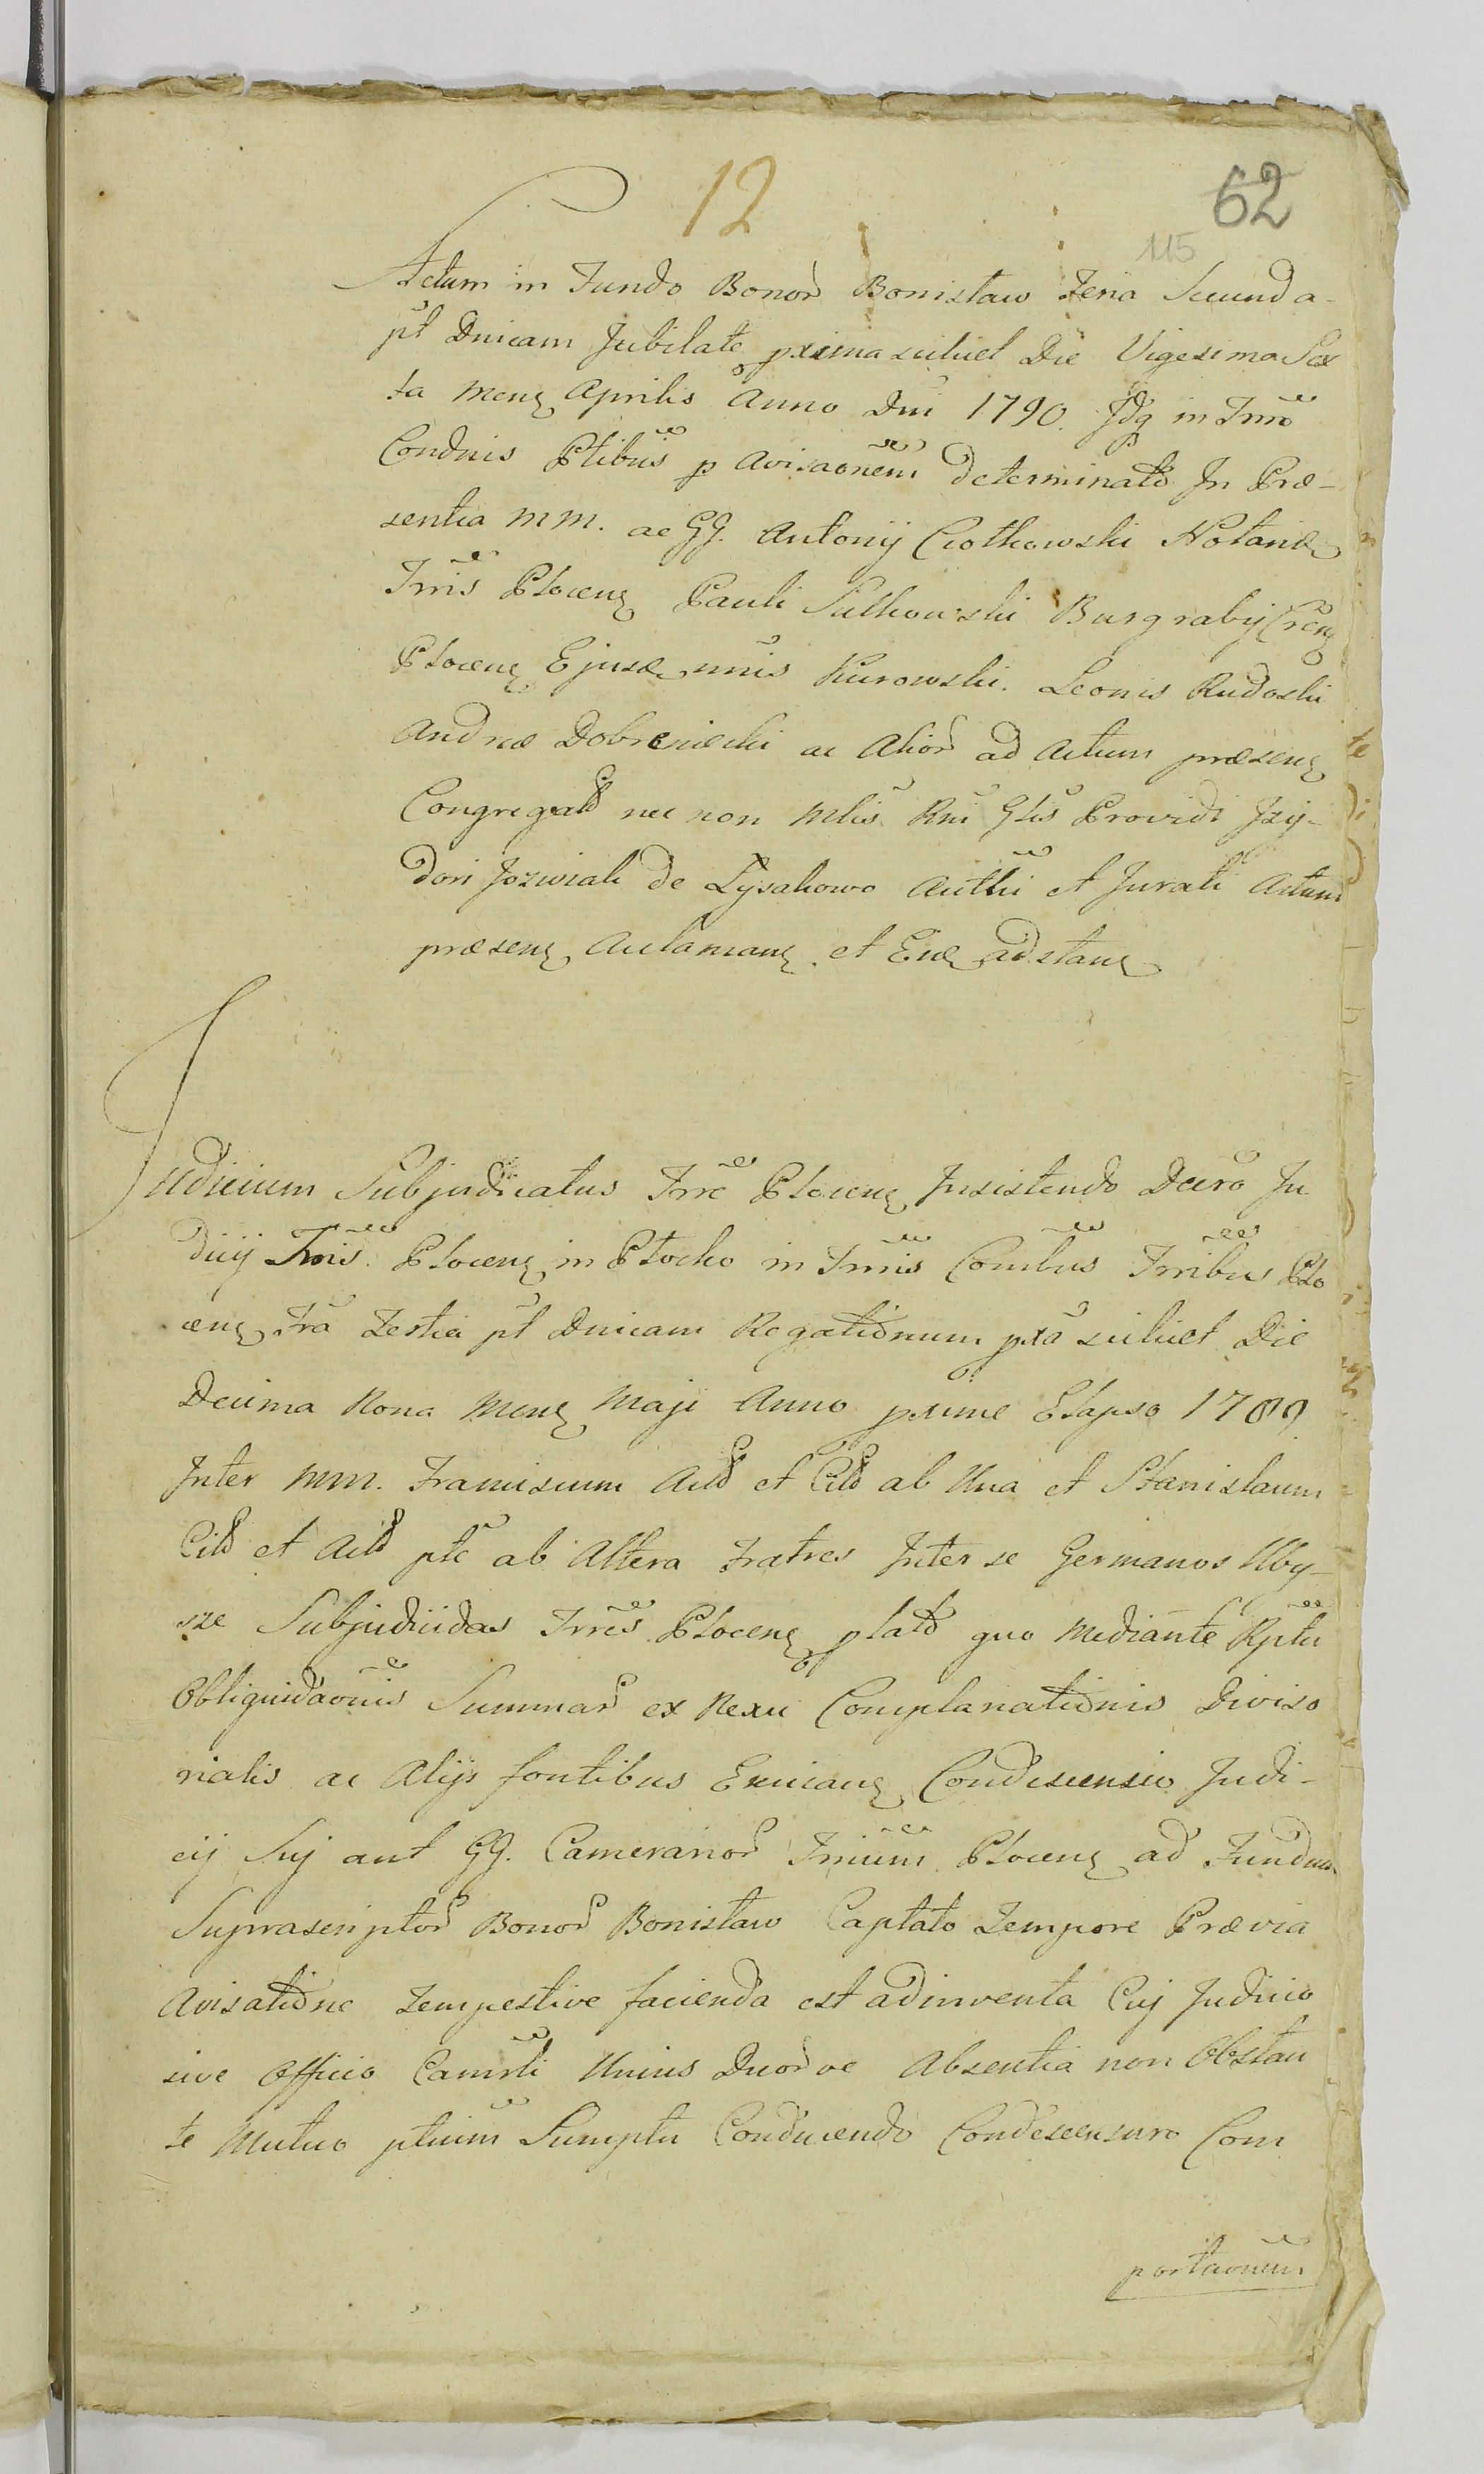 12
62
115
Actum in Fundo Bonor Bonisław Feria Secunda
pt Dnicam Jubilate pxima scilicet Die Vigesima Sex
ta Mens Aprilis Anno Dni 1790. Idq in Trmo
Condnis Ptibus p Avisaonem determinato In Præ-
sentia MM. ac GG. Antonij Ciotkowski Notarij
Trris Plocens Pauli Sulkowski Burgrabij Crens
Plocens Ejusd nnis Kurowski. Leonis Rudoski
Andreæ Dobrzeniecki ac Alior ad Actum præsens
Congregat nec non Mlis Rni Glis Providi Izy-
dori Jozwiak de Lysakowo Autthi et Jurati Actum
præsens Aclamans et Eund adstans
Judicium Subjudicatus Trræ Plocens Insistendo Decro Ju
dicij Trris. Plocens in Plocko in Trmis Conibus Trribus Plo
cens Fra Tertia pt Dnicam Rogationum pxa scilicet Die
Decima Nona Mens Maji Anno pxime Elapso 1789
Inter MM. Franciscum Act et Cit ab Una et Stanislaum
Cit et Act pte ab Altera Fratres Inter se Germanos Uby-
sze Subjudicidas Trres Plocens plato quo Mediante Rptu
Obliquidaonis Summar ex Nexu Complanationis Diviso
rialis ac Alijs fontibus Enicans Condescensio Judi-
cij Sui aut GG. Camerarior Trrium Plocens ad Fundum
Suprascriptor Bonor Bonisław Captato Tempore Prævia
Avisatione Tempestive facienda est adinventa Cuj Judicio
sive Officio Camrli Unius Duorve Absentia non Obstan
te Mutuo ptium Sumptu Conducendo Condescensuro Com
portaonem